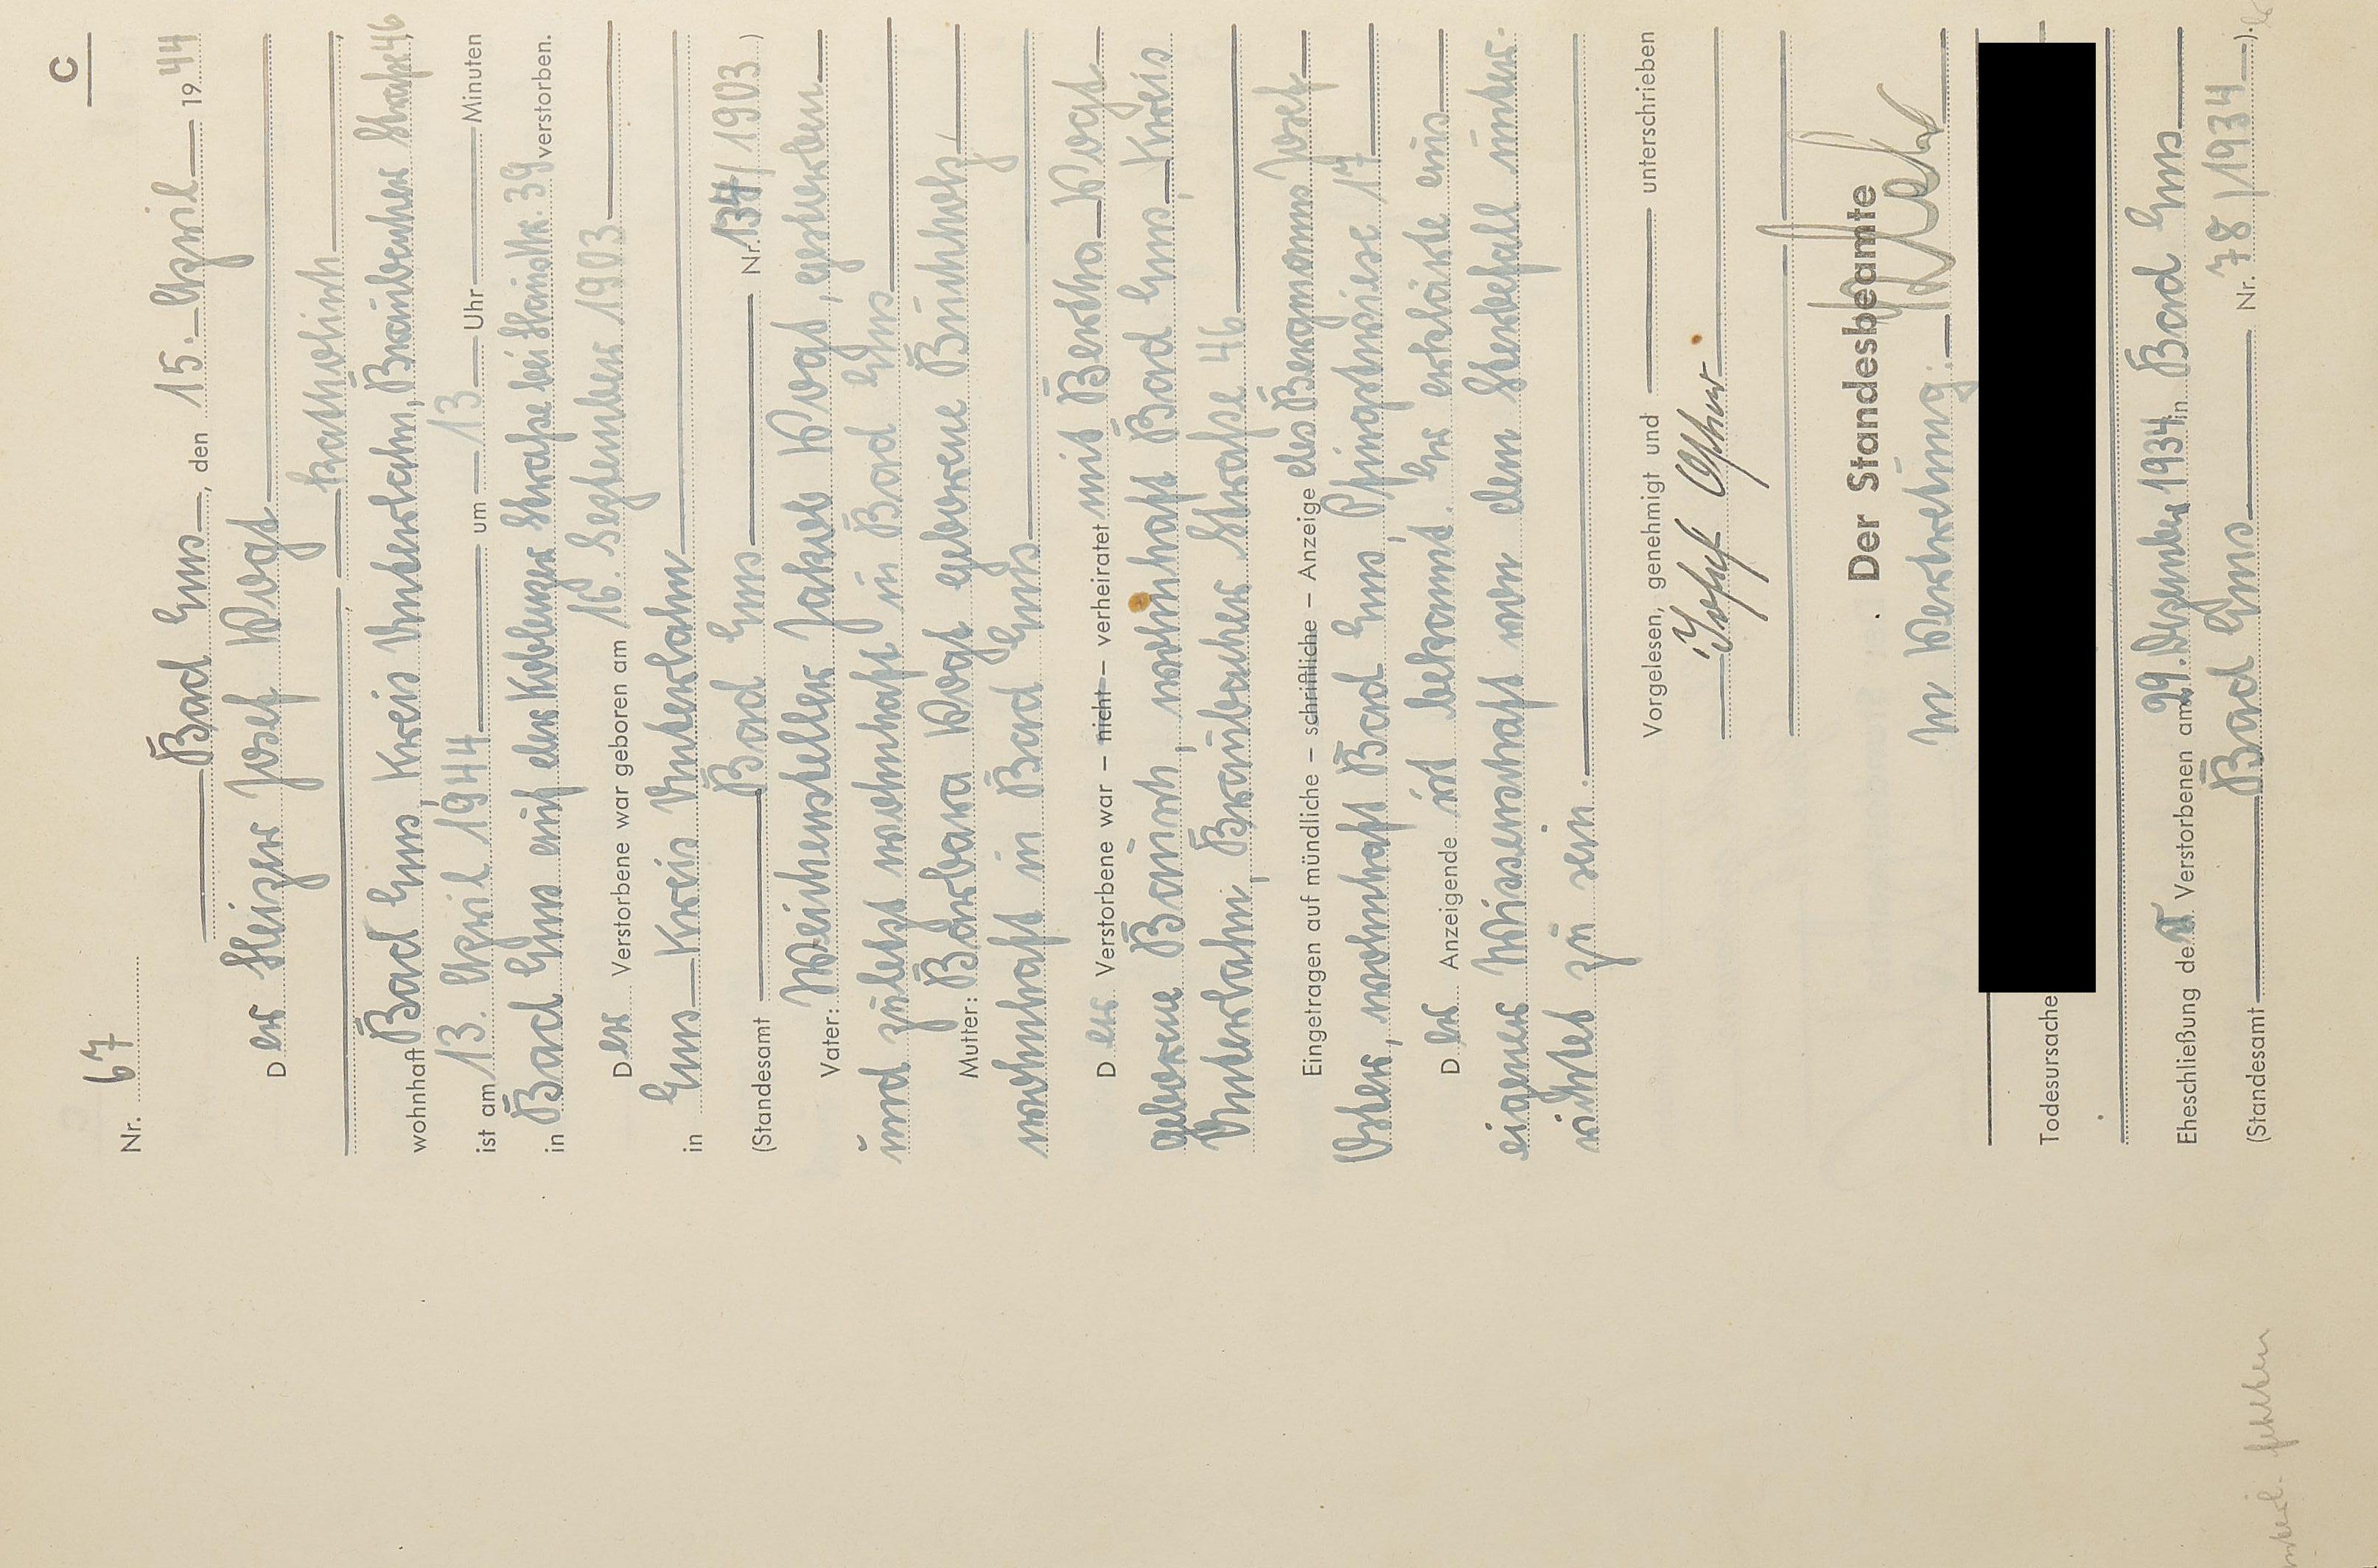 C
Nr. 67
Bad Ems, den 15. April 1944
Der Heizer Josef Vogt
katholisch
wohnhaft Bad Ems, Kreis Unterlahn, Braubacher Straße 46,
ist am 13. April 1944 um 13 Uhr Minuten
in Bad Ems auf der Koblenzer Straße bei Haus Nr. 39 verstorben.
Der Verstorbene war geboren am 16. September 1903
in Ems Kreis Unterlahn
(Standesamt Bad Ems Nr. 134/1903.)
Vater: Weichensteller Jakob Vogt, gestorben
und zuletzt wohnhaft in Bad Ems
Mutter: Barbara Vogt geborene Buchholz,
wohnhaft in Bad Ems
Der Verstorbene war – nicht – verheiratet mit Bertha Vogt
geborene Bausch, wohnhaft Bad Ems, Kreis
Unterlahn, Braubacher Straße 46
Eingetragen auf mündliche – schriftliche – Anzeige des Bergmanns Josef
wohnhaft Bad Ems, Pfingstwiese 17
Der Anzeigende ist bekannt. Er erklärte aus
eigener Wissenschaft von dem Sterbefall unter-
richtet zu sein.
Vorgelesen, genehmigt und unterschrieben
Josef
Der Standesbeamte
In Vertretung:
Todesursache
Eheschließung der Verstorbenen am 29. Dezember 1934 in Bad Ems
(Standesamt Bad Ems Nr. 78/1934).